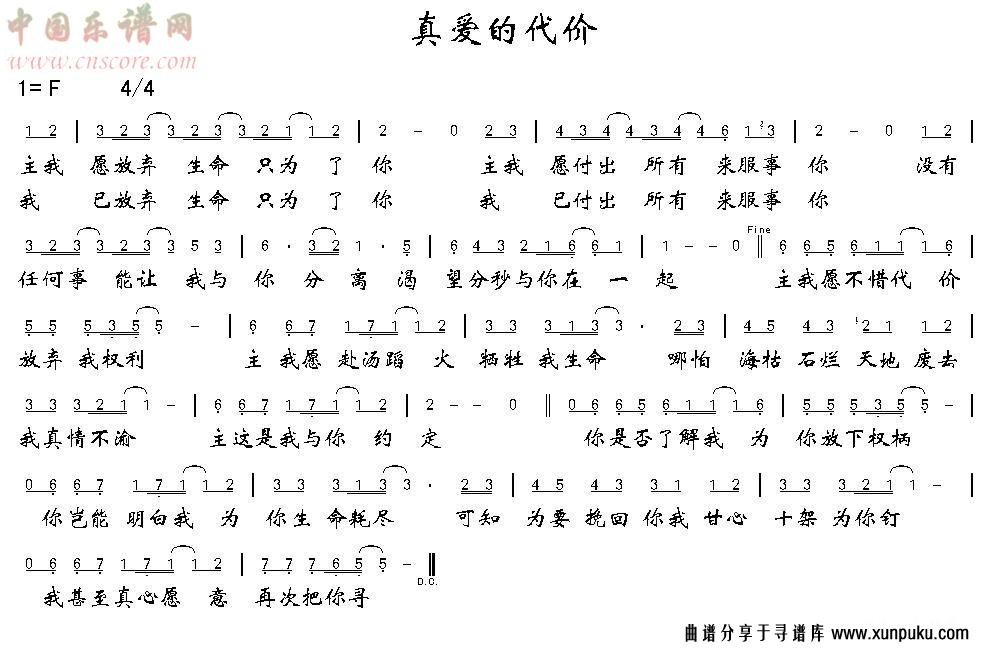 中国乐谱网
www.cnscore.com
真爱的代价
1= F 4/4
1 2 | 3 2 3 3 2 3 3 2 1 1 2 | 2 - 0 2 3 | 4 3 4 4 3 4 4 6 1 2 3 | 2 - 0 1 2 |
主我 愿放弃 生命 只为 了 你 主我 愿付出 所有 来服事 你 没有
我 已放弃 生命 只为 了 你 我 已付出 所有 来服事 你
Fine
3 2 3 3 2 3 3 5 3 | 6 · 3 2 1 · 5 | 6 4 3 2 1 6 6 1 | 1 - - 0 || 6 6 5 6 1 1 1 6 |
任何事 能让 我与 你 分 离 渴 望分秒与你在 一 起 主我愿不惜代 价
5 5 5 3 5 5 - | 6 6 7 1 7 1 1 2 | 3 3 3 1 3 3 · 2 3 | 4 5 4 3 1 2 1 1 2 |
放弃 我权利 主 我愿 赴汤蹈 火 牺牲 我生命 哪怕 海枯 石烂 天地 废去
3 3 3 2 1 1 - | 6 6 7 1 7 1 1 2 | 2 - - 0 || 0 6 6 5 6 1 1 1 6 | 5 5 5 3 5 5 - |
我真情不渝 主这是我与你 约 定 你是否了解我 为 你放下权柄
0 6 6 7 1 7 1 1 2 | 3 3 3 1 3 3 · 2 3 | 4 5 4 3 3 1 1 2 | 3 3 3 2 1 1 - |
你岂能 明白我 为 你生 命耗尽 可知 为要 挽回 你我 甘心 十架 为你钉
0 6 6 7 1 7 1 1 2 | 7 7 7 6 5 5 - ||
D.C.
我甚至真心愿 意 再次把你寻
曲谱分享于寻谱库 www.xunpuku.com